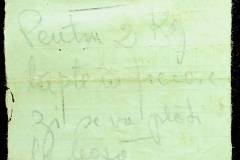 Pentru 2 Kg
lapte in fiecare
zi se va plati